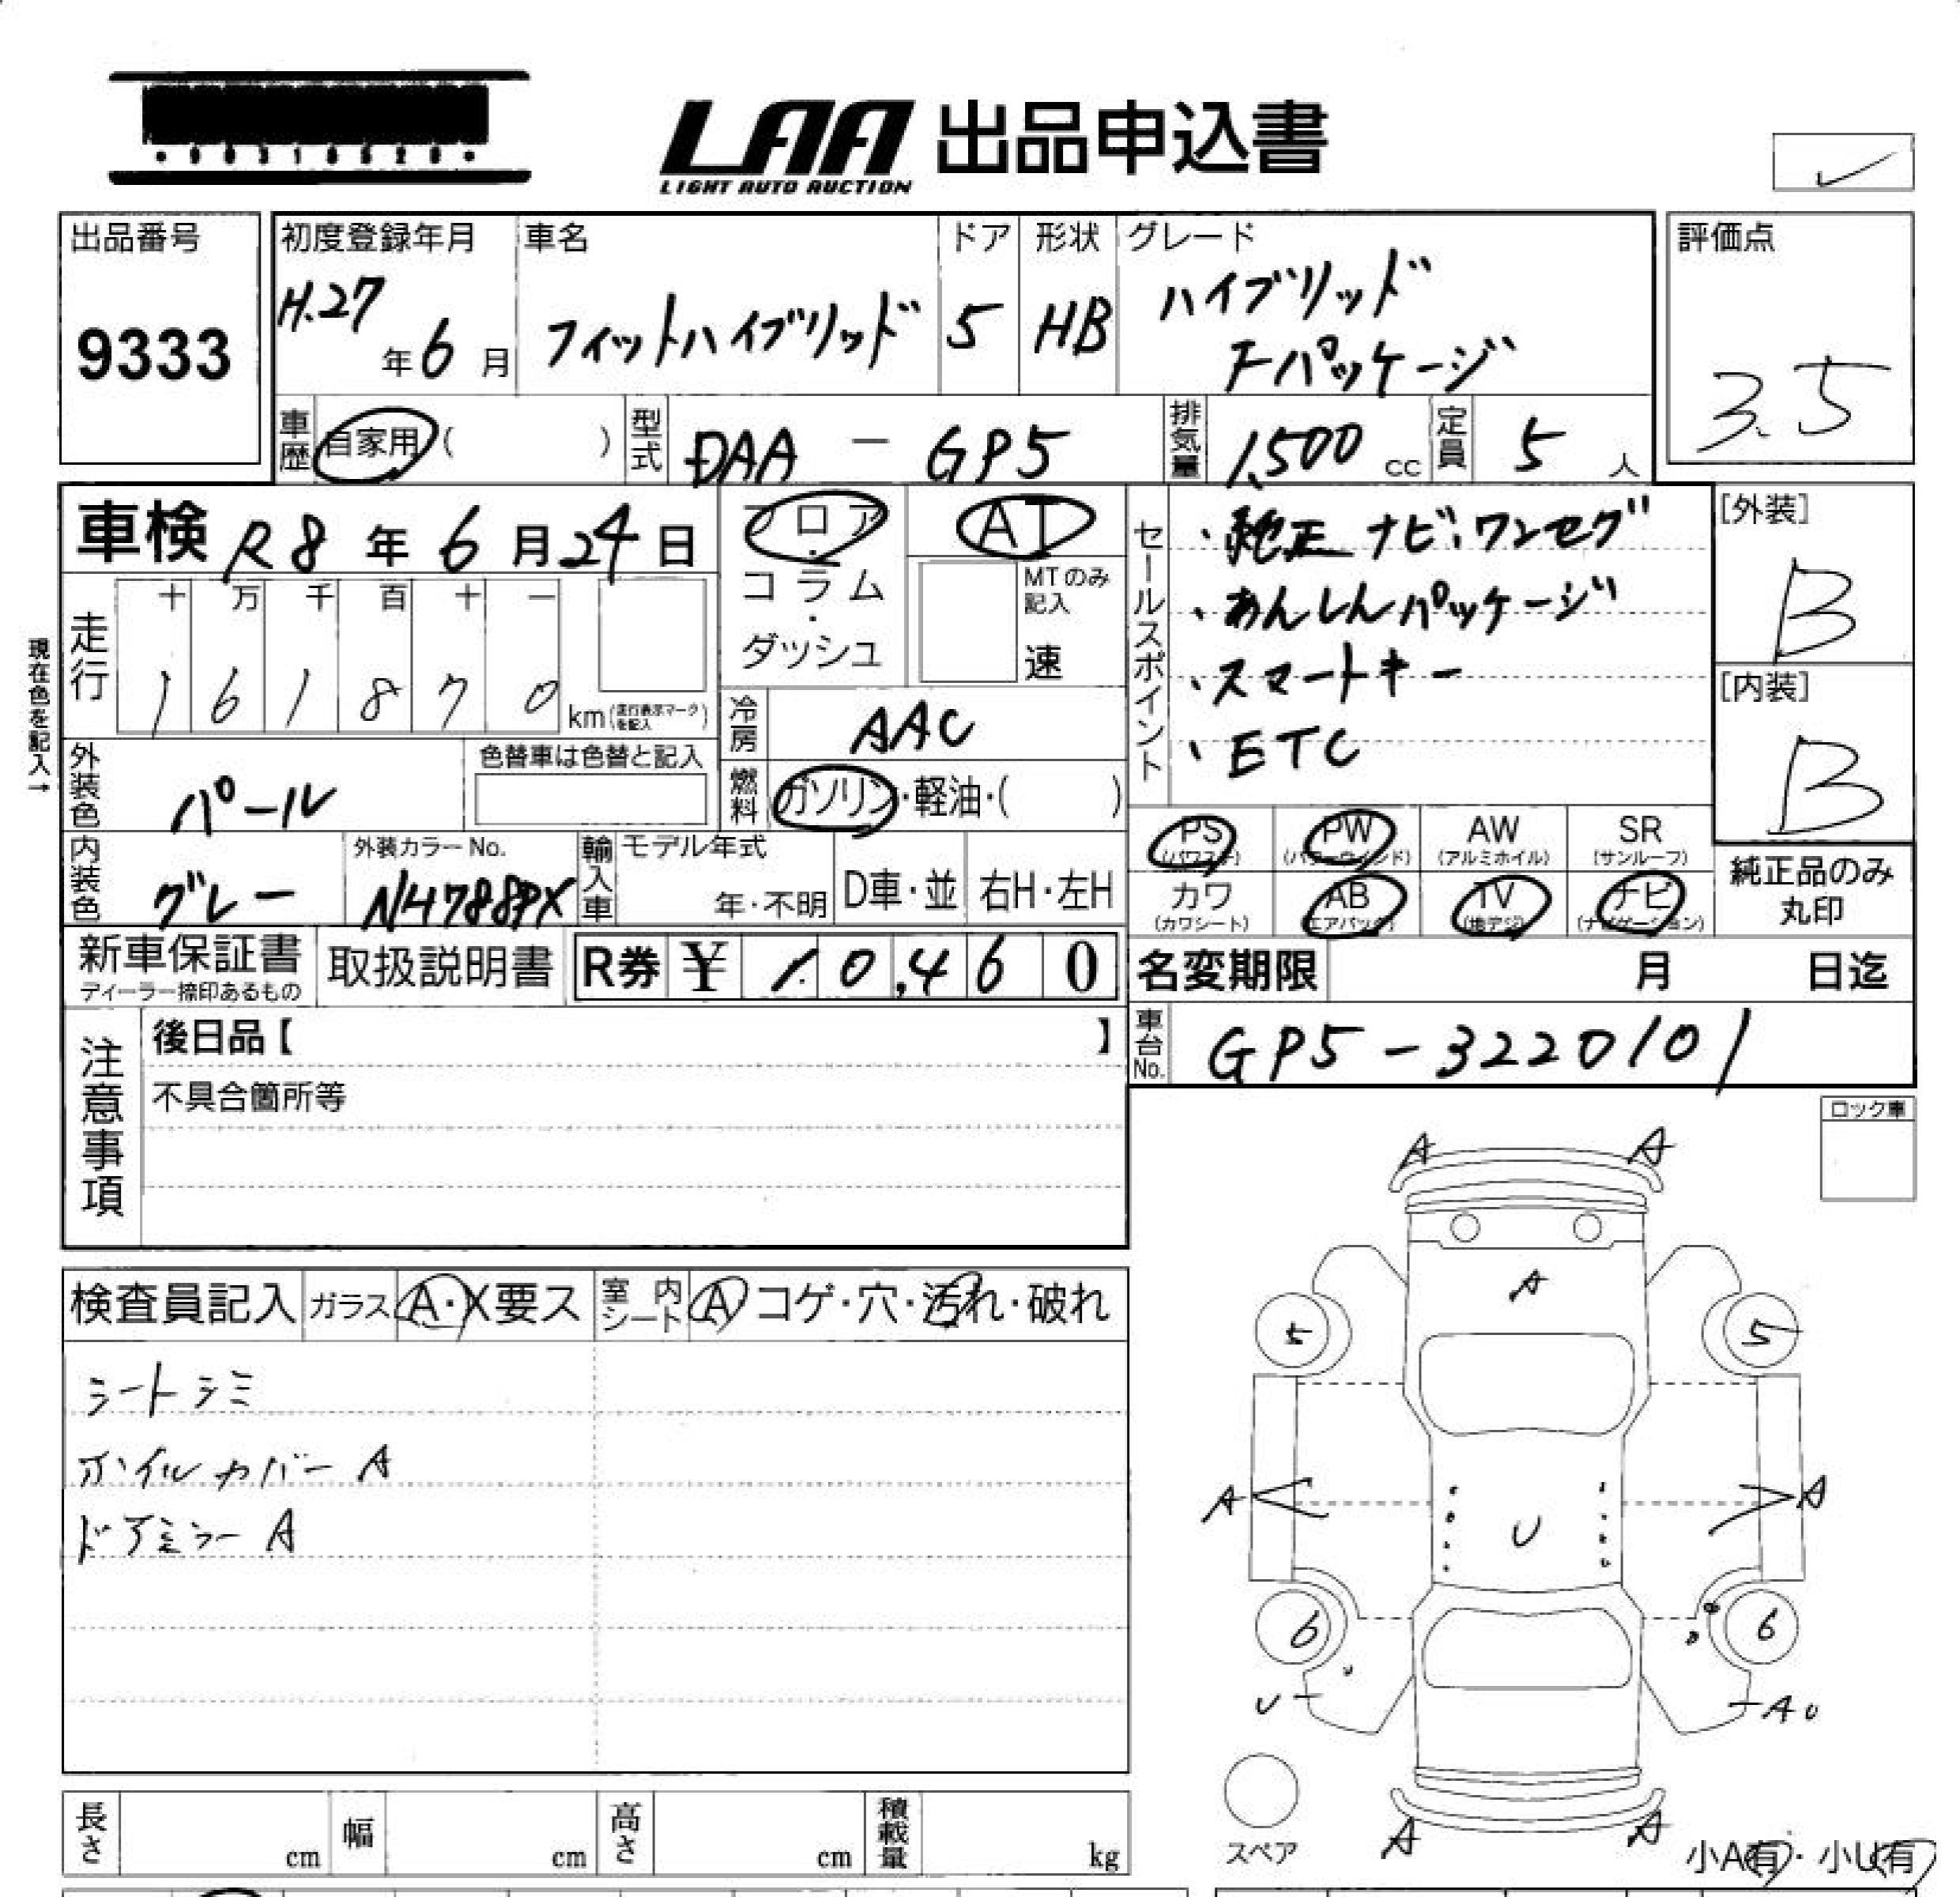 LAA 出品申込書
LIGHT AUTO AUCTION
出品番号
9333
初度登録年月
H.27年6月
車名
フィットハイブリッド
ドア
5
形状
HB
グレード
ハイブリッド
Fパッケージ
評価点
3.5
車歴 自家用( )
型式 DAA - GP5
排気量 1,500 cc
定員 5 人
車検 R8年6月24日
フロア・コラム・ダッシュ
AT
MTのみ記入
速
セールスポイント
・純正ナビ、ワンセグ
・あんしんパッケージ
・スマートキー
・ETC
[外装]
B
[内装]
B
現在色を記入→
走行
十 万 千 百 十 一
1 6 1 8 7 0 km(走行表示マークを記入)
冷房 AAC
燃料 ガソリン・軽油・( )
外装色 パール
色替車は色替と記入
内装色 グレー
外装カラーNo.
NH788PX
輸入車
モデル年式
年・不明
D車・並
右H・左H
PS (パワステ)
PW (パワーウィンド)
AW (アルミホイル)
SR (サンルーフ)
カワ (カワシート)
AB (エアバッグ)
TV (地デジ)
ナビ (ナビゲーション)
純正品のみ丸印
新車保証書
ディーラー捺印あるもの
取扱説明書
R券 ¥ 10,460
名変期限 月 日迄
車台No. GP5-3220101
注意事項
後日品【 】
不具合箇所等
ロック車
検査員記入
ガラス A・X要ス
室内シート A コゲ・穴・汚れ・破れ
シートシミ
ホイルカバー A
ドアミラー A
A A
A
5 5
A A
U
6 6
U A U
A A
スペア
小A有・小U有
長さ cm
幅 cm
高さ cm
積載量 kg